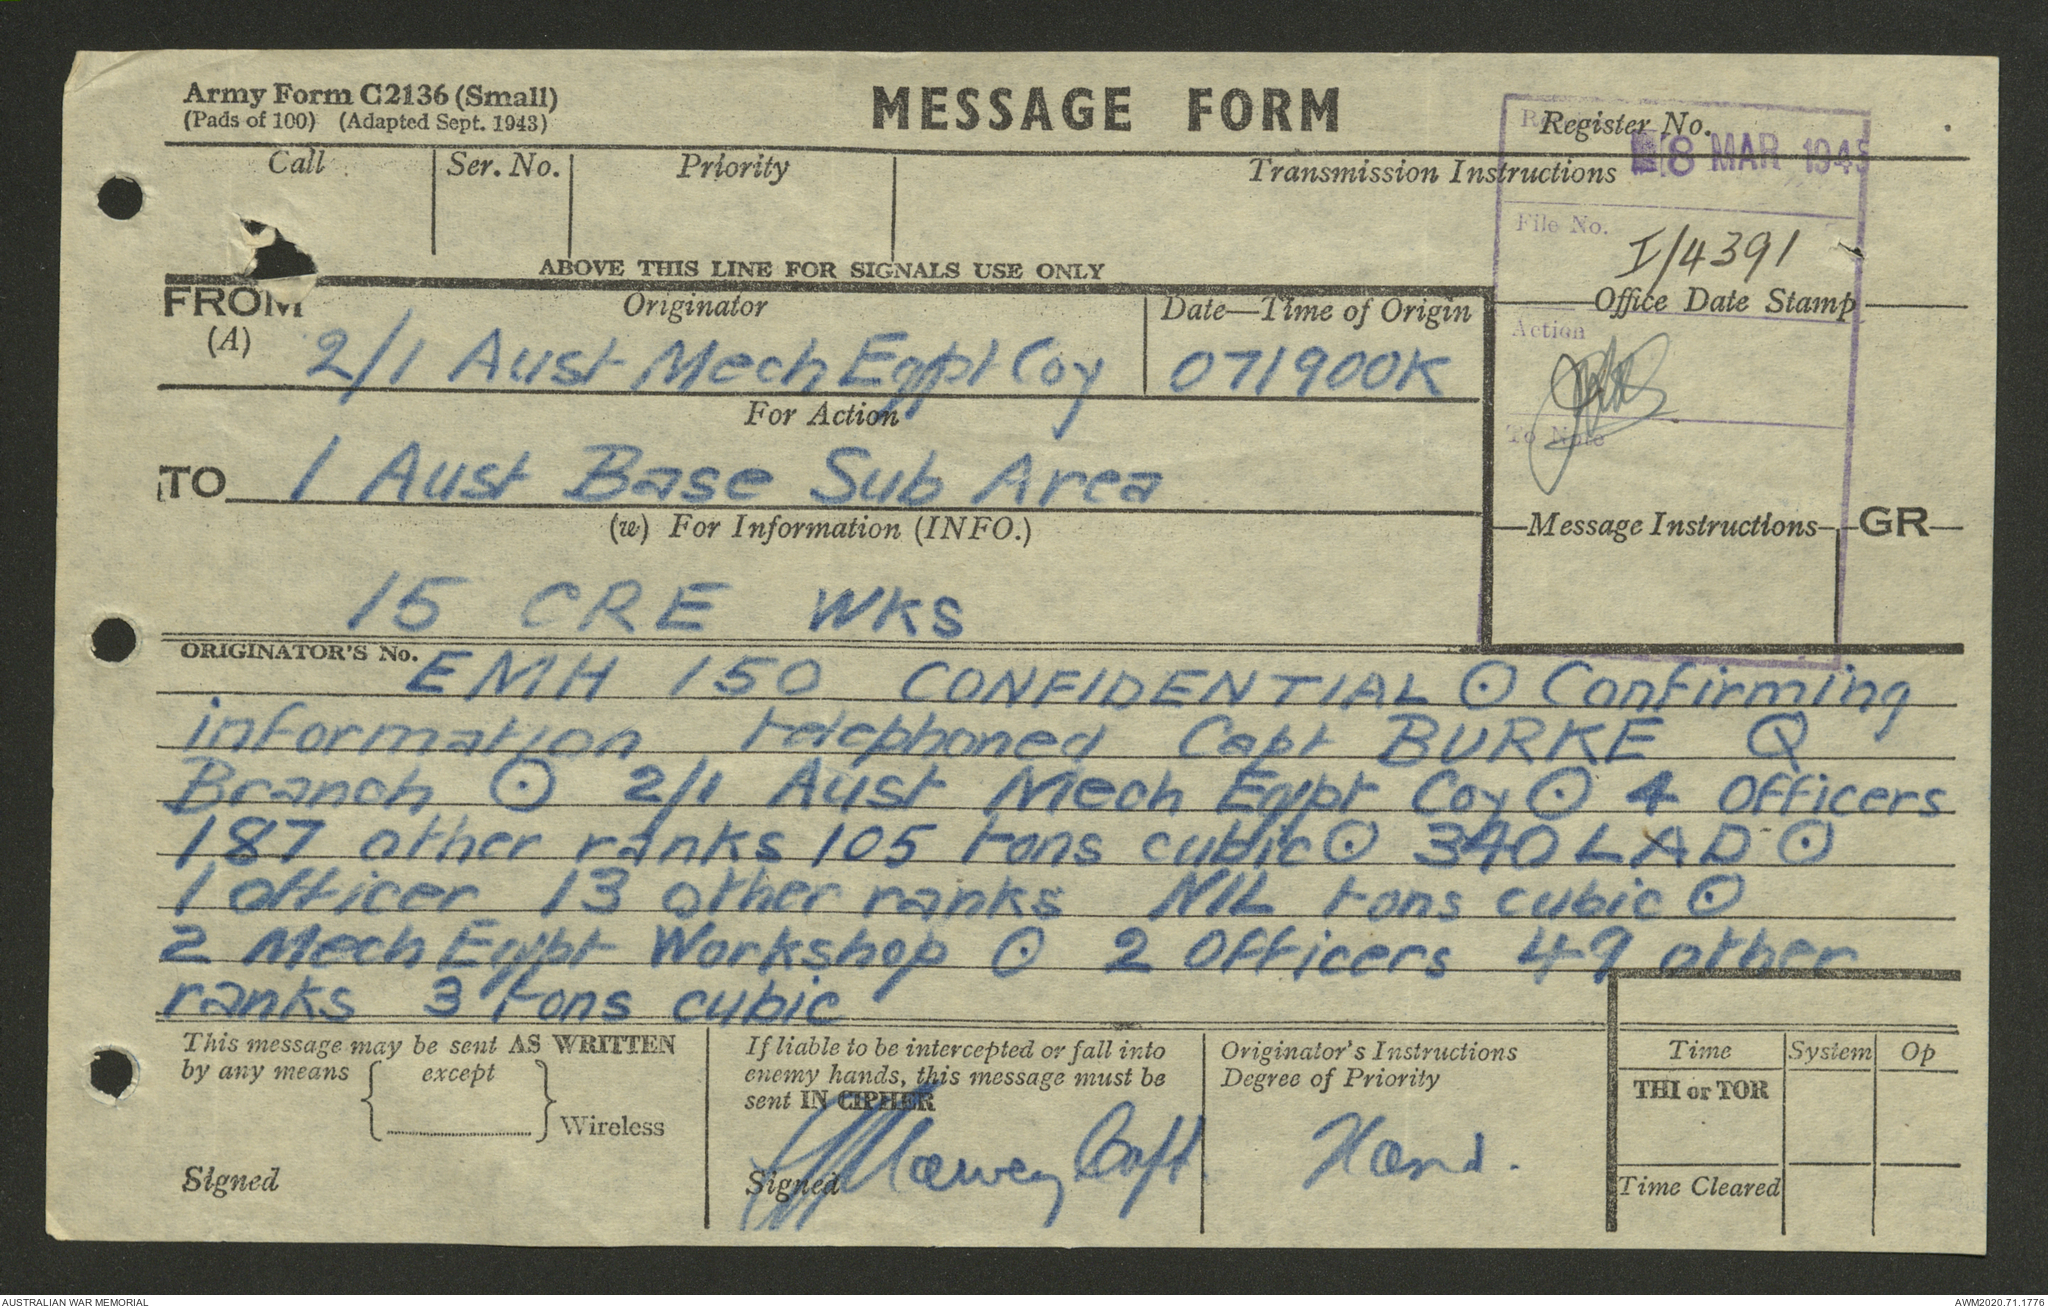 Army Form C2136 (Small)
(Pads of 100) (Adapted Sept. 1943)
MESSAGE FORM
Register No.
8 MAR 1945
Call
Ser. No.
Priority
Transmission Instructions
File No.
I/4391
ABOVE THIS LINE FOR SIGNALS USE ONLY
Office Date Stamp
FROM
(A)
Originator
2/1 Aust Mech Eqpt Coy
Date—Time of Origin
071900K
Action
For Action
To Note
TO 1 Aust Base Sub Area
(w) For Information (INFO.)
Message Instructions
GR
15 CRE WKS
ORIGINATOR'S No.
EMH 150 CONFIDENTIAL ⊙ Confirming
information telephoned Capt BURKE Q
Branch ⊙ 2/1 Aust Mech Eqpt Coy ⊙ 4 Officers
187 other ranks 105 tons cubic ⊙ 340 LAD ⊙
1 officer 13 other ranks NIL tons cubic ⊙
2 Mech Eqpt Workshop ⊙ 2 Officers 49 other
ranks 3 tons cubic
This message may be sent AS WRITTEN
by any means { except } Wireless
Signed
If liable to be intercepted or fall into
enemy hands, this message must be
sent IN CIPHER
Signed Harvey Capt.
Originator's Instructions
Degree of Priority
Hand.
Time System Op
THI or TOR
Time Cleared
AUSTRALIAN WAR MEMORIAL
AWM2020.71.1776